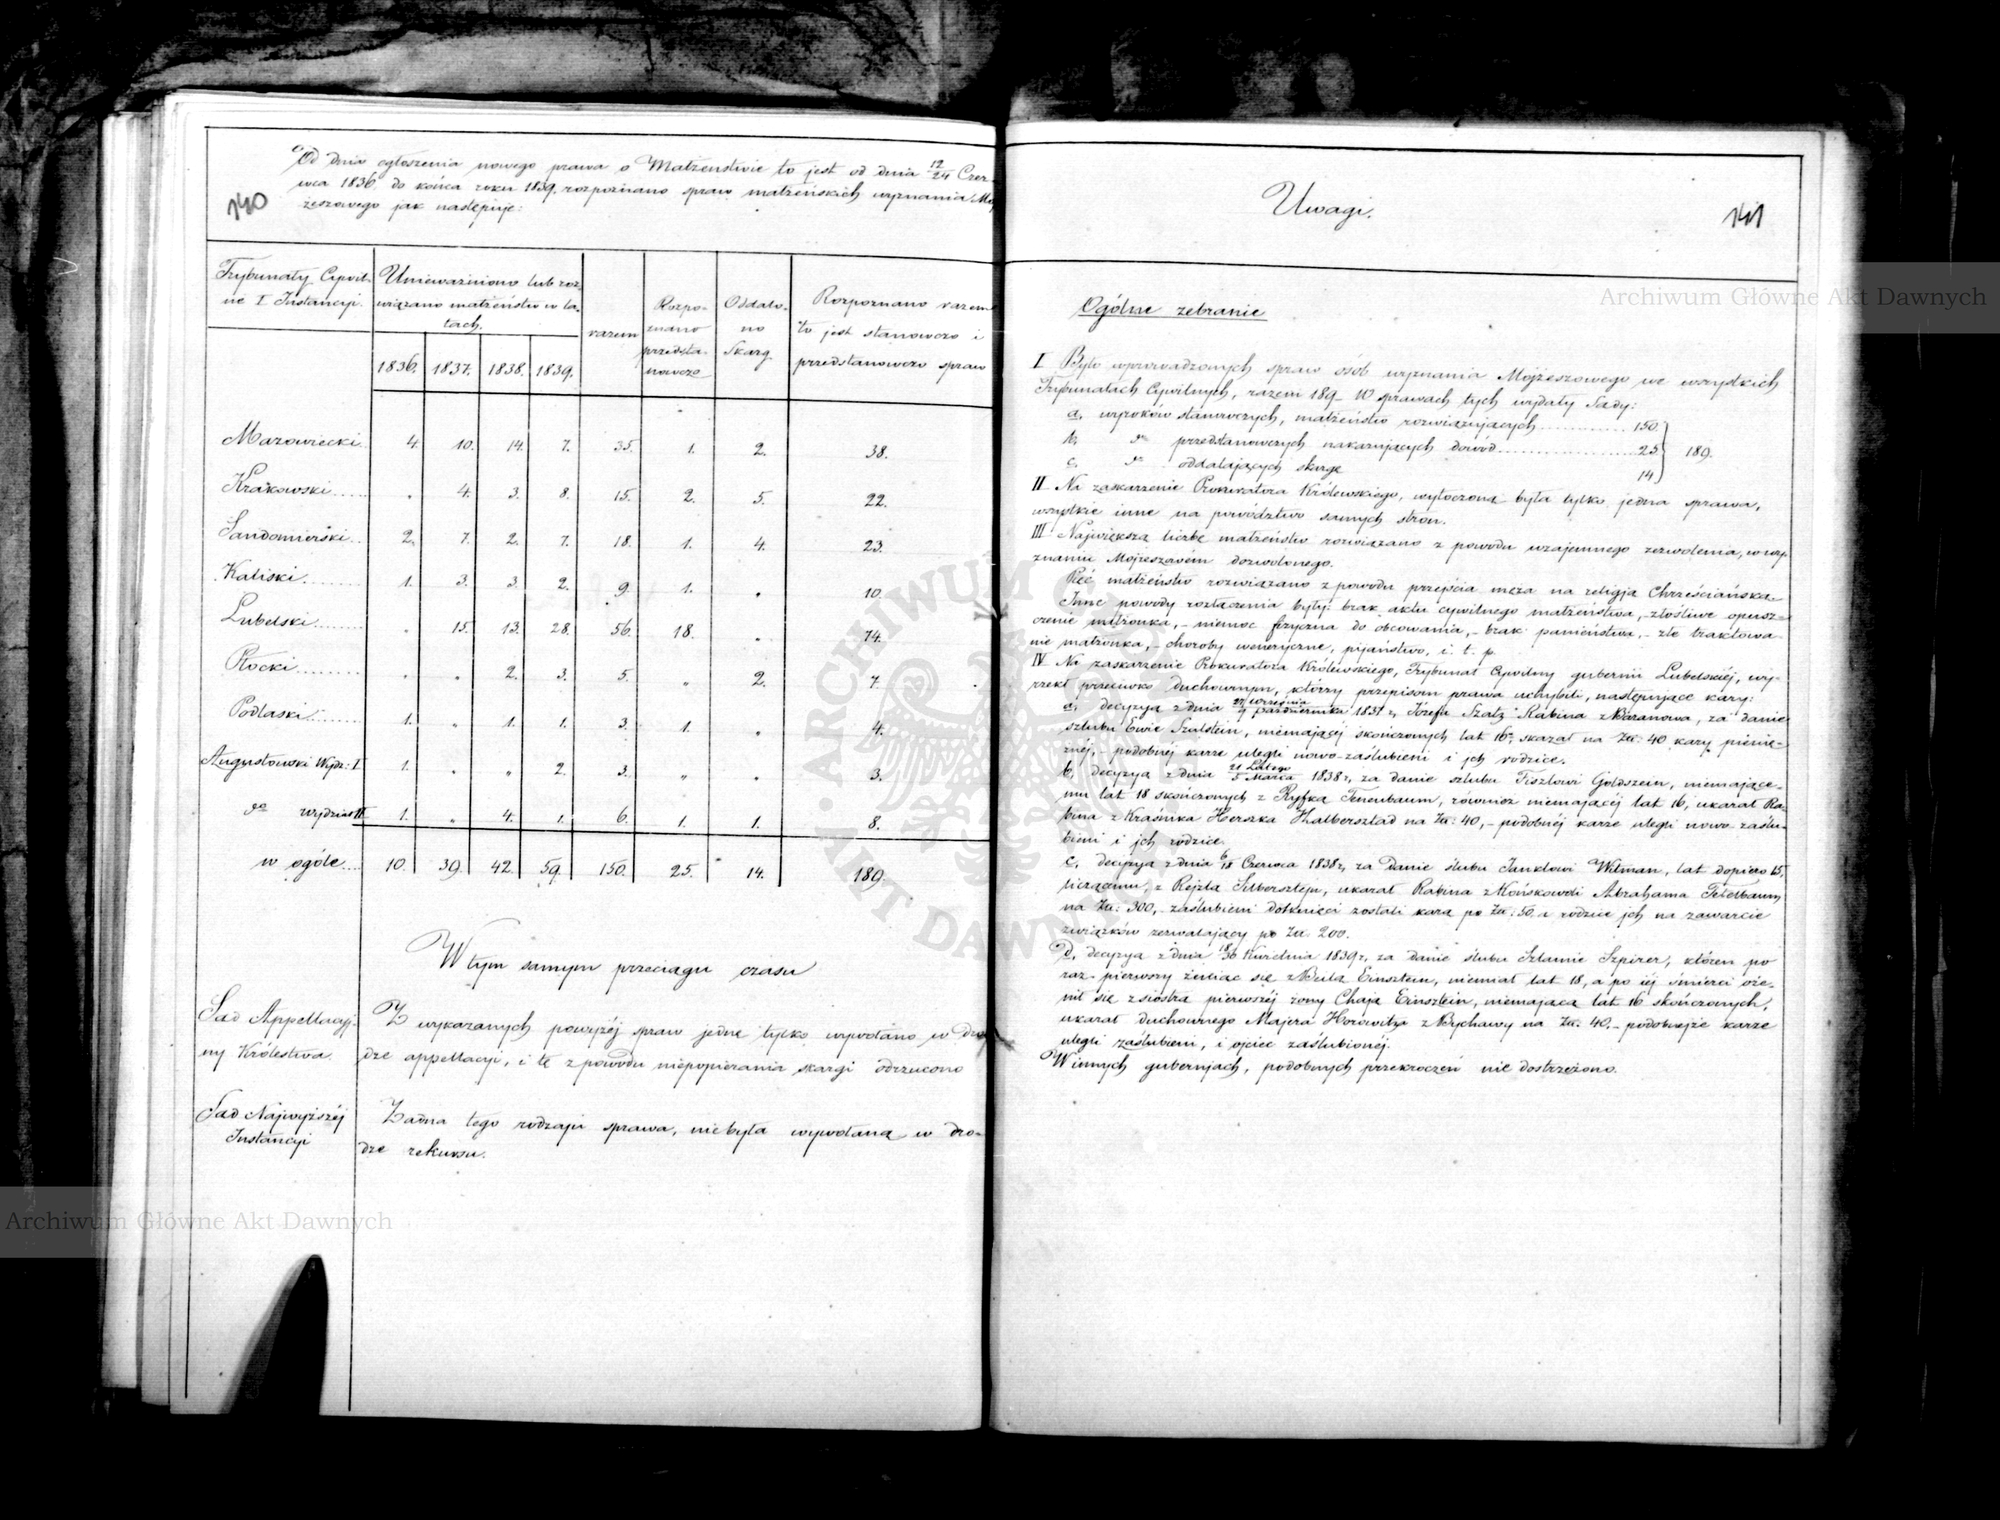 Od dnia ogłoszenia nowego prawa o Małżeństwie to jest od dnia 12/24 Czer-
wca 1836. do końca roku 1839. rozpoznano spraw małżeńskich wyznania Moj-
żeszowego jak następuje:
140
Trybunały Cywil-
ne I Instancyi.
Unieważniono lub roz-
wiązano małżeństw w la-
tach.
1836. 1837. 1838. 1839.
razem
Rozpo-
znano
przedsta-
nowczo
Oddalo-
no
Skarg
Rozpoznano razem
to jest stanowczo i
przedstanowczo spraw
Mazowiecki 4. 10. 14. 7. 35. 1. 2. 38.
Krakowski . 4. 3. 8. 15. 2. 5. 22.
Sandomierski 2. 7. 2. 7. 18. 1. 4. 23.
Kaliski 1. 3. 3. 2. 9. 1. . 10.
Lubelski . 15. 13. 28. 56. 18. . 74.
Płocki . . 2. 3. 5. „ 2. 7.
Podlaski 1. „ 1. 1. 3. 1. „ 4.
Augustowski Wydz: I 1. „ „ 2. 3. „ . 3.
do wydział II 1. „ 4. 1. 6. 1. 1. 8.
w ogóle 10. 39. 42. 59. 150. 25. 14. 189.
W tym samym przeciągu czasu
Sąd Appellacyj-
ny Królestwa
Z wykazanych powyżéj spraw jednę tylko wywołano w dro-
dze appellacyi, i tę z powodu niepopierania skargi odrzucono
Sąd Najwyższéj
Instancyi
Żadna tego rodzaju sprawa, niebyła wywołaną w dro-
dze rekursu.
Uwagi.
141
Ogólne zebranie
I Było wprowadzonych spraw osób wyznania Mojżeszowego we wszystkich
Trybunałach Cywilnych, razem 189. W sprawach tych wydały Sądy:
a, wyroków stanowczych, małżeństwo rozwiązujących 150.
b, do przedstanowczych nakazujących dowód 25. 189.
c, do oddalających skargę 14
II Na zaskarżenie Prokuratora Królewskiego, wytoczoną była tylko jedna sprawa,
wszystkie inne na powództwo samych stron.
III Największą liczbę małżeństw rozwiązano z powodu wzajemnego zezwolenia, w wy-
znaniu Mojżeszowém dozwolonego.
Pięć małżeństw rozwiązano z powodu przejścia męża na religją Chrześciańską
Inne powody rozłączenia były: brak aktu cywilnego małżeństwa, - złośliwe opusz-
czenie małżonka, - niemoc fizyczna do obcowania, - brak panieństwa, - złe traktowa-
nie małżonka, - choroby weneryczne, pijaństwo, i. t. p.
IV Na zaskarżenie Prokuratora Królewskiego, Trybunał Cywilny gubernii Lubelskiéj, wy-
rzekł przeciwko duchownym, którzy przepisom prawa uchybili, następujące kary:
a, decyzyą z dnia 27 Września / 9 Października 1837 r, Józefa Szatz Rabina z Baranowa, za danie
szlubu Ewie Szulstein, niemającéj skończonych lat 16, skazał na Zł: 40 kary pienię-
żnéj, - podobnéj karze ulegli nowo-zaślubieni i ich rodzice.
b, decyzyą z dnia 21 Lutego / 5 Marca 1838 r, za danie szlubu Fiszlowi Goldszein, niemające-
mu lat 18 skończonych z Ryfką Tenenbaum, również niemającéj lat 16, ukarał Ra-
bina z Kraśnika Herszka Halbersztad na Zł: 40, - podobnéj karze ulegli nowo-zaślu-
bieni i ich rodzice.
c, decyzyą z dnia 6/18 Czerwca 1838 r, za danie ślubu Janklowi Witman, lat dopiero 15,
liczącemu, z Rejzlą Silbersztejn, ukarał Rabina z Końskowoli Abrahama Tetelbaum
na Zł: 300, - zaślubieni dotknięci zostali karą po Zł: 50. a rodzice ich na zawarcie
związków zezwalający po Zł. 200.
d, decyzyą z dnia 18/30 Kwietnia 1839 r, za danie ślubu Szlamie Szpirer, któren po
raz pierwszy żeniąc się z Beilą Einsztein, niemiał lat 18, a po iéj śmierci oże-
nił się z siostrą pierwszéj żony Chają Einsztein, niemającą lat 16 skończonych,
ukarał duchownego Majera Horowitza z Bychawy na Zł: 40. - podobnejże karze
ulegli zaślubieni, i ojciec zaślubionéj.
W innych gubernjach, podobnych przekroczeń nie dostrzeżono.
Archiwum Główne Akt Dawnych
Archiwum Główne Akt Dawnych
ARCHIWUM GŁÓWNE AKT DAWNYCH